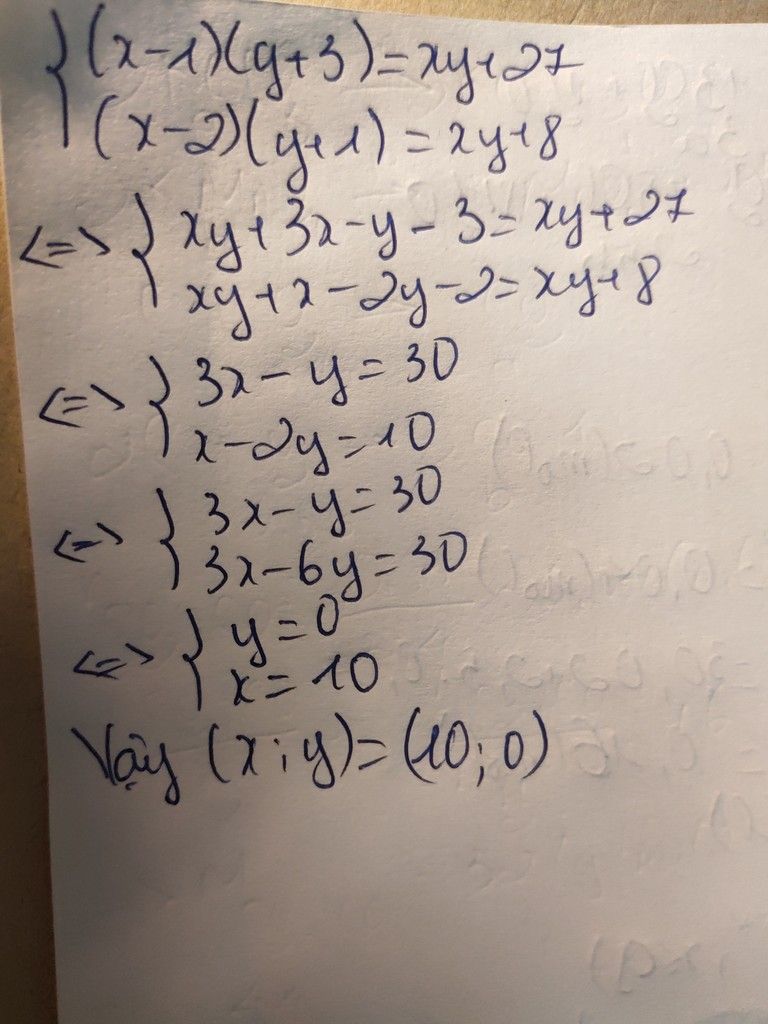 {(x-1)(y+3)=xy+27
(x-2)(y+1)=xy+8
<=> {xy+3x-y-3=xy+27
xy+x-2y-2=xy+8
<=> {3x-y=30
x-2y=10
<=> {3x-y=30
3x-6y=30
<=> {y=0
x=10
Vậy (x;y)=(10;0)